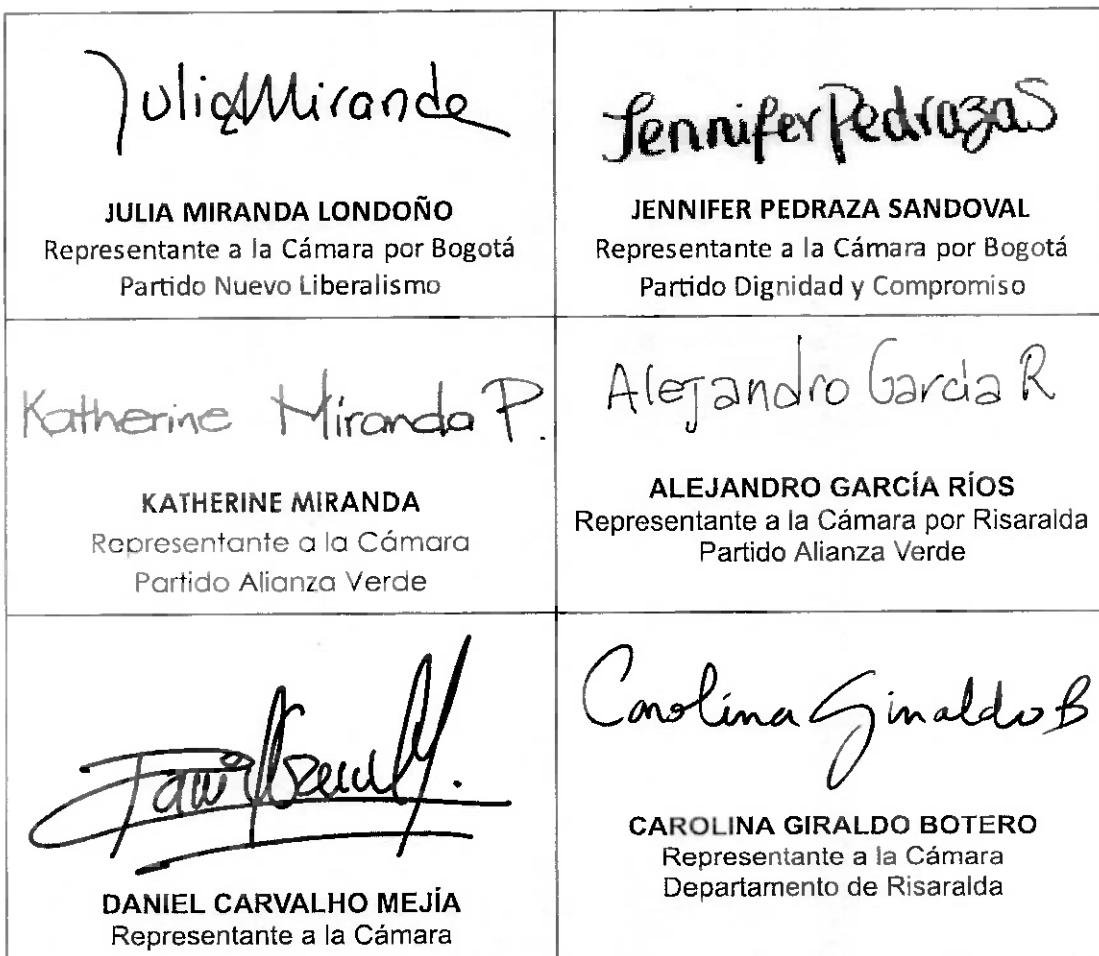 Julia Miranda
JULIA MIRANDA LONDOÑO
Representante a la Cámara por Bogotá
Partido Nuevo Liberalismo
Jennifer Pedraza S
JENNIFER PEDRAZA SANDOVAL
Representante a la Cámara por Bogotá
Partido Dignidad y Compromiso
Katherine Miranda P.
KATHERINE MIRANDA
Representante a la Cámara
Partido Alianza Verde
Alejandro García R
ALEJANDRO GARCÍA RÍOS
Representante a la Cámara por Risaralda
Partido Alianza Verde
DANIEL CARVALHO MEJÍA
Representante a la Cámara
Carolina Giraldo B
CAROLINA GIRALDO BOTERO
Representante a la Cámara
Departamento de Risaralda